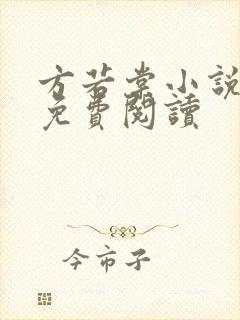 方若棠小說
免費閱讀
今市子